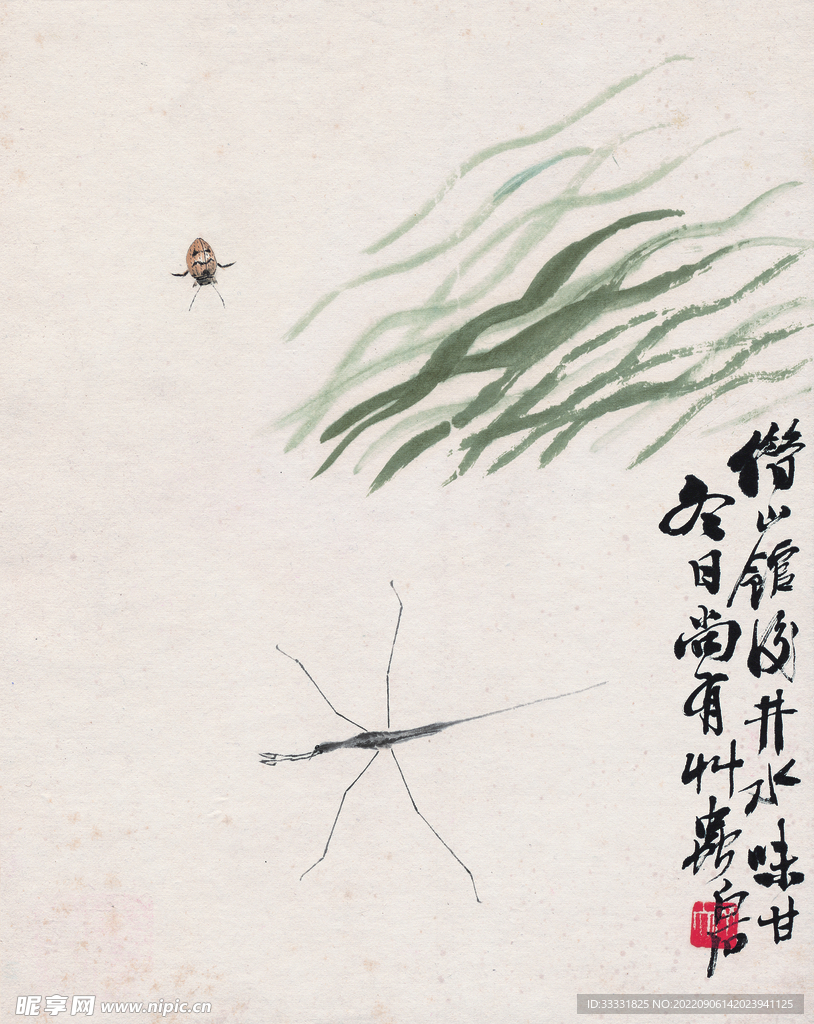 借山馆后井水味甘
冬日尚有艸虫白石
昵享网 www.nipic.cn
ID:33331825 NO:20220906142023941125